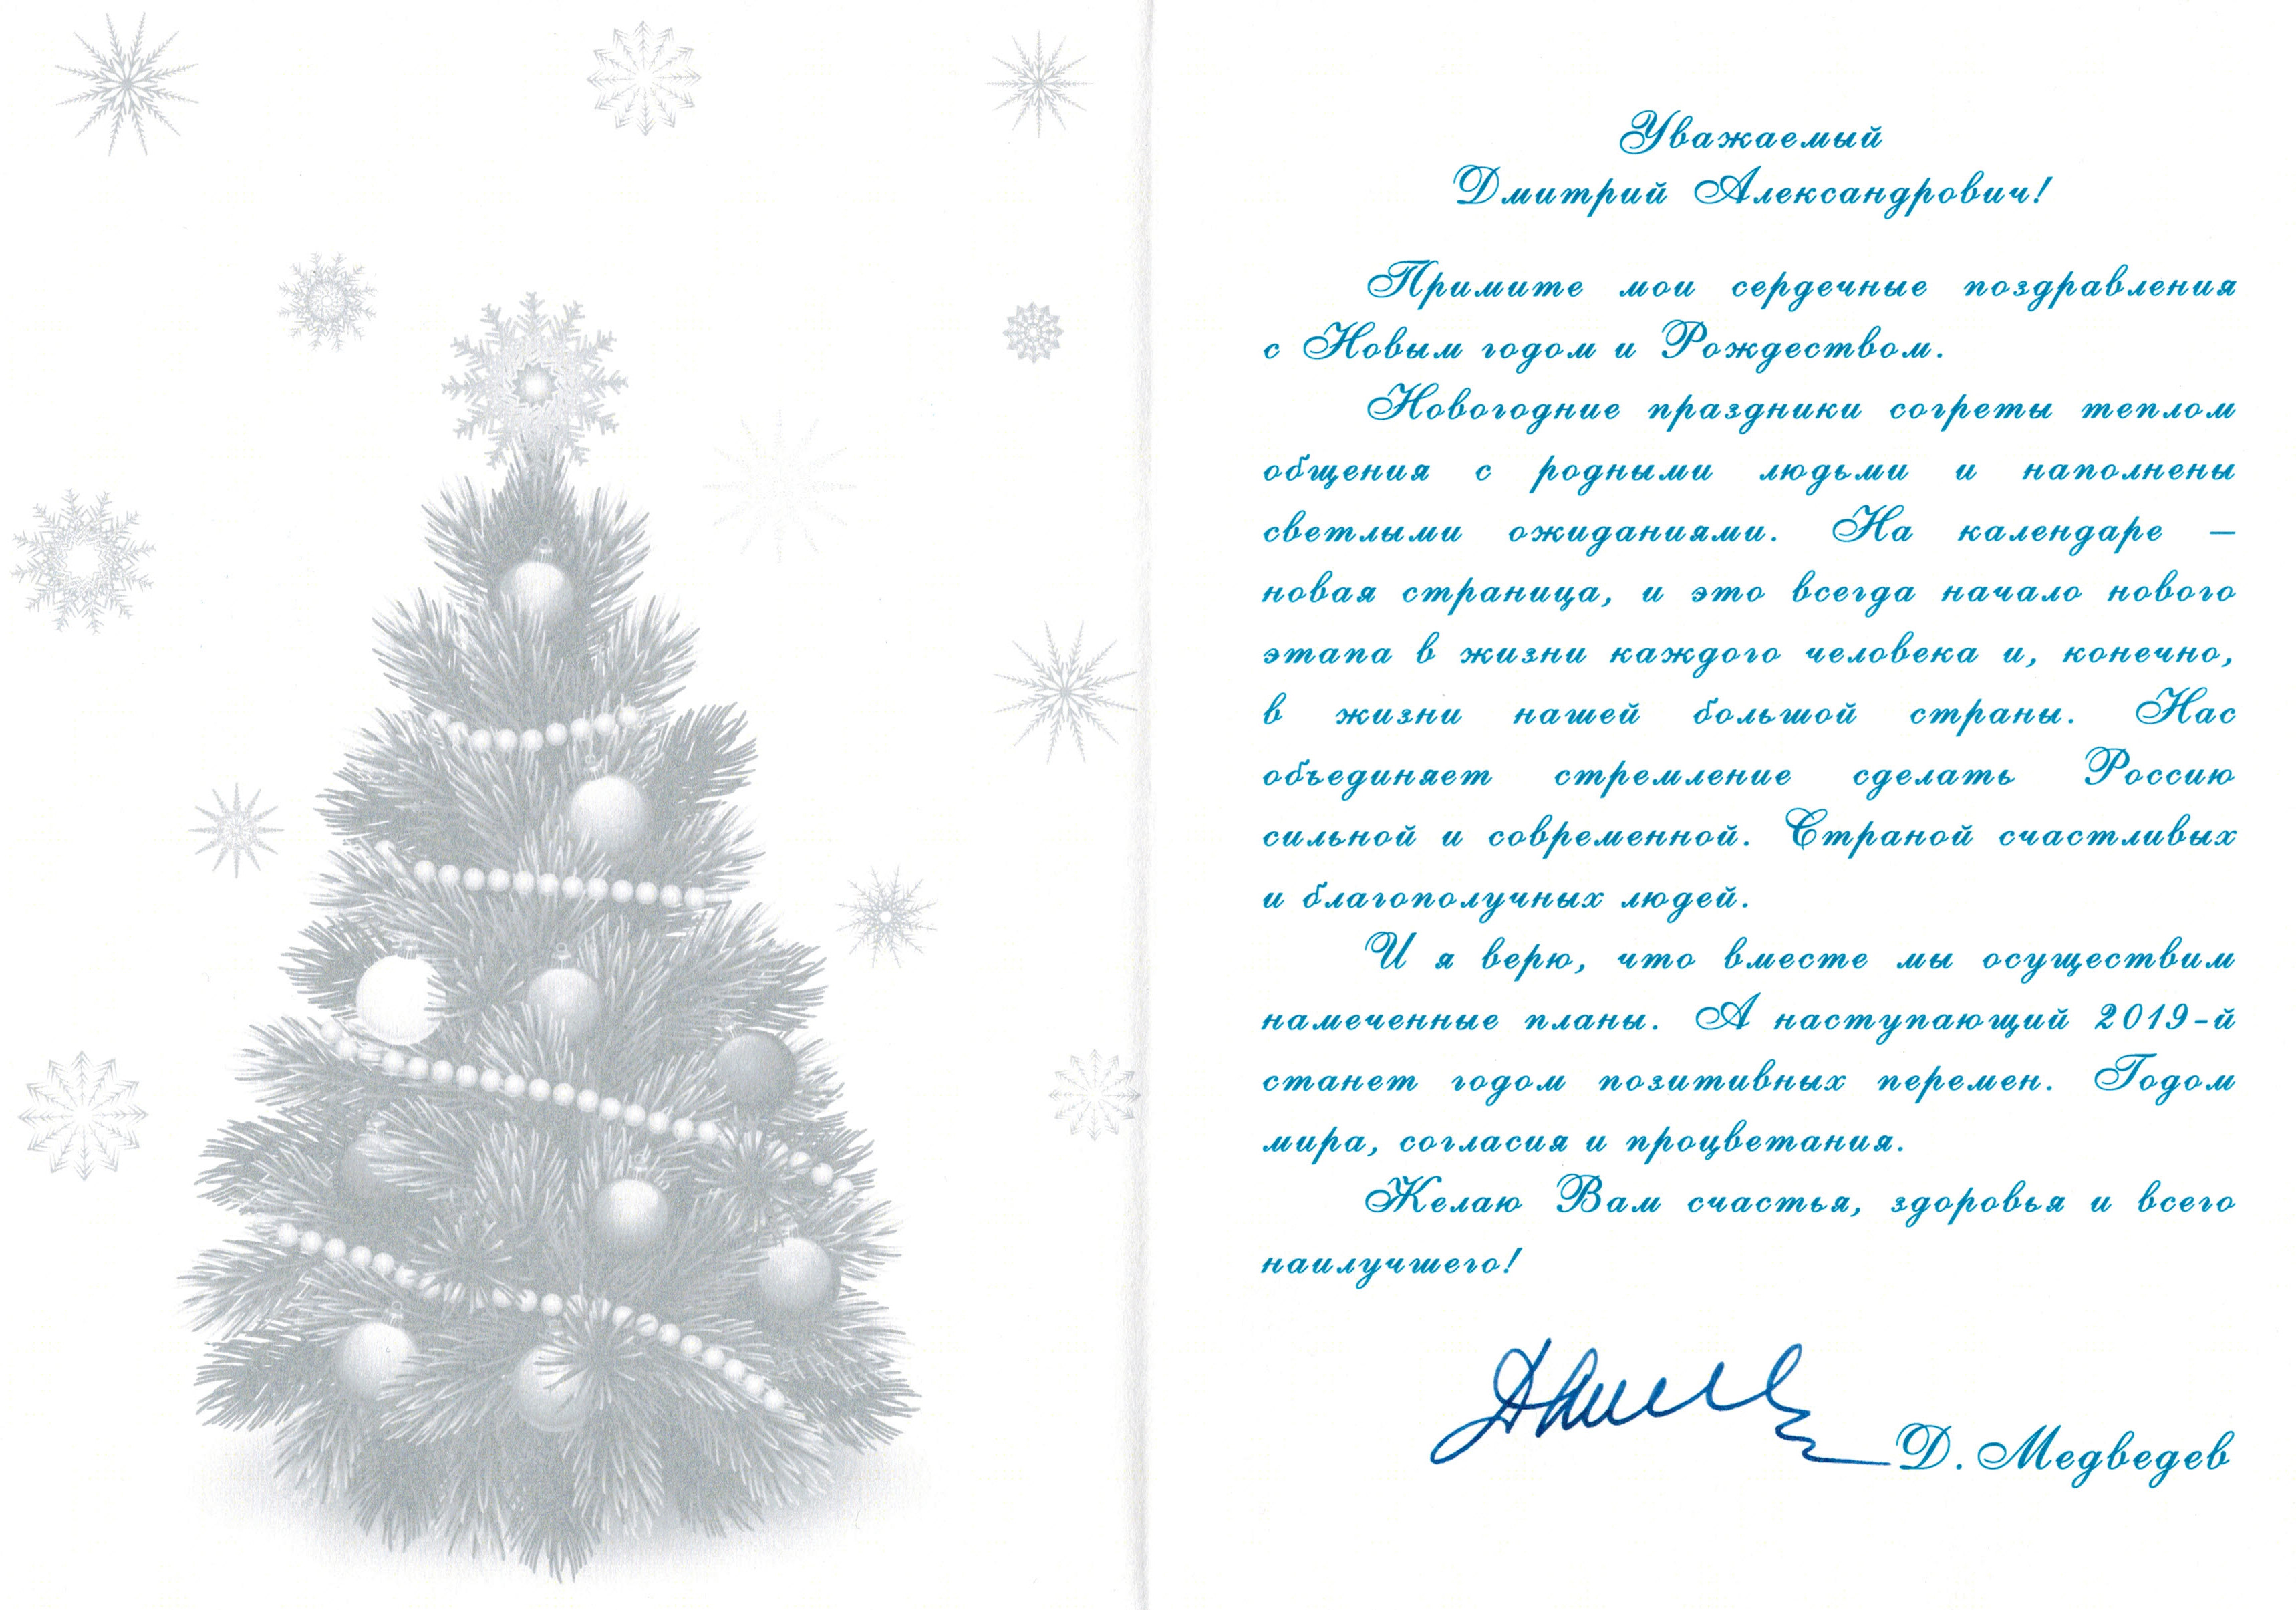 Уважаемый
Дмитрий Александрович!
Примите мои сердечные поздравления
с Новым годом и Рождеством.
Новогодние праздники согреты теплом
общения с родными людьми и наполнены
светлыми ожиданиями. На календаре –
новая страница, и это всегда начало нового
этапа в жизни каждого человека и, конечно,
в жизни нашей большой страны. Нас
объединяет стремление сделать Россию
сильной и современной. Страной счастливых
и благополучных людей.
И я верю, что вместе мы осуществим
намеченные планы. А наступающий 2019-й
станет годом позитивных перемен. Годом
мира, согласия и процветания.
Желаю Вам счастья, здоровья и всего
наилучшего!
Д. Медведев